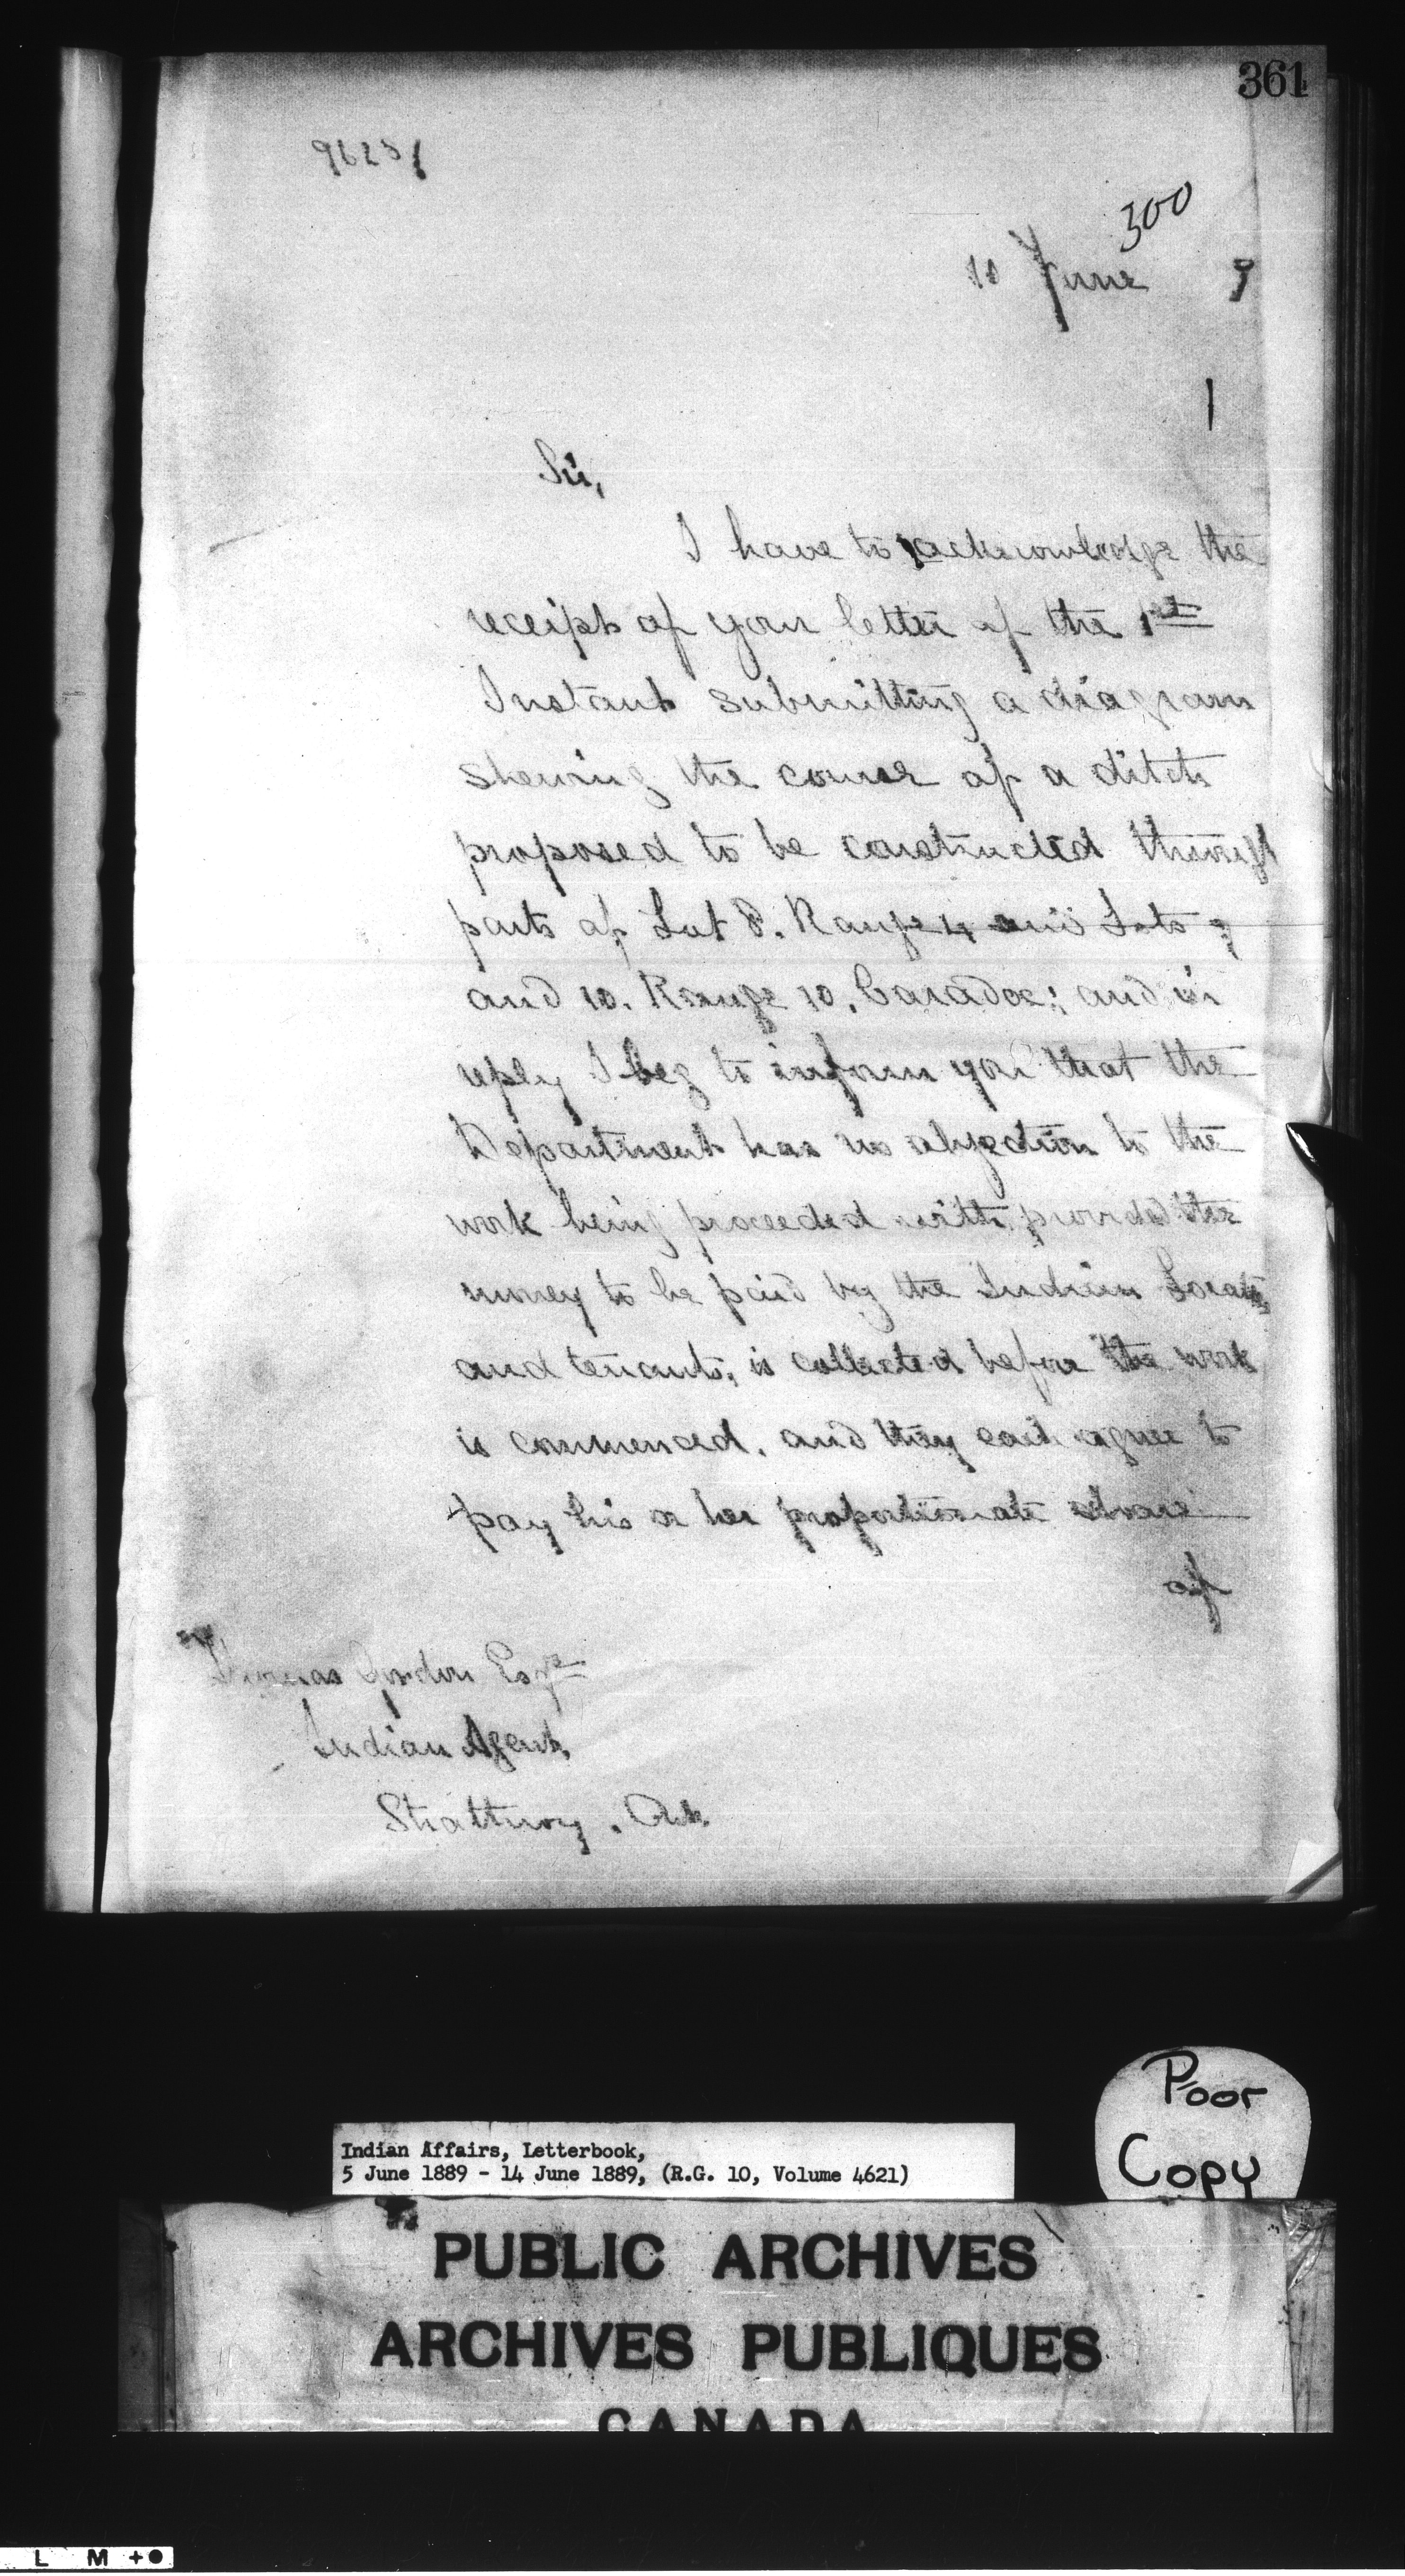 361
96251
300
June 9
Sir,
I have to acknowledge the
receipt of your letter of the 1st
Instant submitting a diagram
shewing the course of a ditch
proposed to be constructed through
parts of Lot 8. Range 4 and Lots 9
and 10. Range 10, Caradoc; and in
reply I beg to inform you that the
Department has no objection to the
work being proceeded with, provided the
money to be paid by the Indian Locatees
and tenants, is collected before the work
is commenced, and they each agree to
pay his or her proportionate share
of
Thomas Gordon Esqre
Indian Agent,
Strathroy, Ont.
Poor
Copy
Indian Affairs, Letterbook,
5 June 1889 - 14 June 1889, (R.G. 10, Volume 4621)
PUBLIC ARCHIVES
ARCHIVES PUBLIQUES
CANADA
L M +●